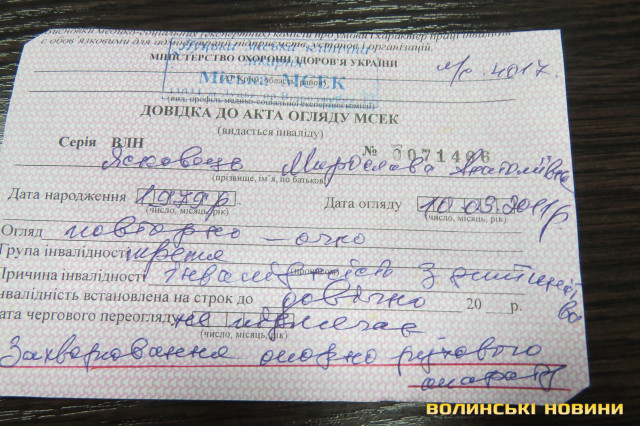 висновки медико-соціальних експертних комісій про умови і характер праці інвалідів
є обов'язковими для адміністрацій підприємств, установ і організацій.
МІНІСТЕРСТВО ОХОРОНИ ЗДОРОВ'Я УКРАЇНИ
м/с. 4017.
Міська МСЕК
(вид, профіль медико-соціальної експертної комісії)
ДОВІДКА ДО АКТА ОГЛЯДУ МСЕК
(видається інваліду)
Серія ВЛН № 0071496
Ясковець Мирослава Анатоліївна
(прізвище, ім'я, по батькові)
Дата народження 1979р. Дата огляду 10.03.2011р
(число, місяць, рік) (число, місяць, рік)
Огляд повторно – очно
Група інвалідності третя
(прописом)
Причина інвалідності Інвалідність з дитинства
Інвалідність встановлена на строк до довічно 20 р.
Дата чергового переогляду не підлягає
(число, місяць, рік)
Захворювання опорно рухового
апарату
ВОЛИНСЬКІ НОВИНИ